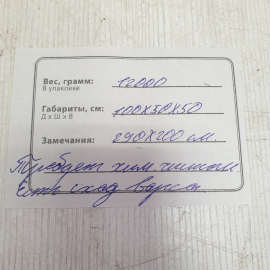 Вес, грамм: 12000
В упаковке
Габариты, см: 100х50х50
Д х Ш х В
Замечания: 290х200 см.
Требует хим. чистки.
Есть уход ворса